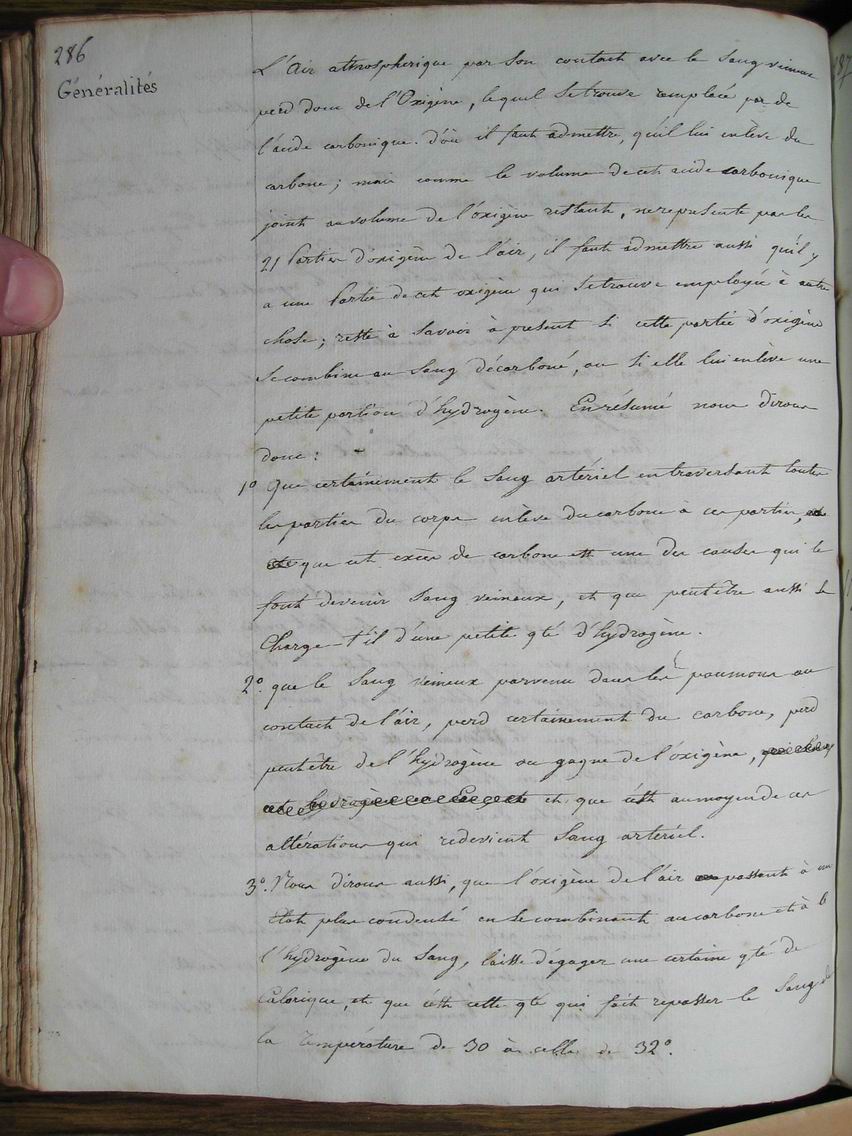 286
Généralités
L'air atmospherique par son contact avec le Sang veineux
perd donc de l'Oxigène, lequel se trouve remplacé par de
l'acide carbonique. d'où il faut admettre, qu'il lui enlève du
carbone; mais comme le volume de cet acide carbonique
joint au volume de l'oxigène restant, ne represente pas les
21 Parties d'oxigène de l'air, il faut admettre aussi qu'il y
a une Partie de cet oxigène qui se trouve employée à autre
chose; reste à savoir à présent si cette partie d'oxigène
se combine au Sang décarboné, ou si elle lui enlève une
petite portion d'hydrogène. En résumé nous dirons
donc:
1º Que certainement le Sang artériel en traversant toutes
les parties du corps enlève du carbone à ces parties,
que cet excès de carbone est une des causes qui le
font devenir Sang veineux, et que peut être aussi se
Charge-t'il d'une petite qté d'hydrogène.
2º. que le Sang veineux parvenu dans les poumons au
contact de l'air, perd certainement du carbone, perd
peut être de l'hydrogène ou gagne de l'oxigène,
et que c'est au moyen de ces
altérations qui redevient Sang arteriel.
3º. Nous dirons aussi, que l'oxigène de l'air passant à un
état plus condensé en se combinant au carbone et à
l'hydrogène du Sang, laisse dégager une certaine qté de
Calorique, et que c'est cette qté qui fait repasser le Sang de
la température de 30 à celle de 32º.